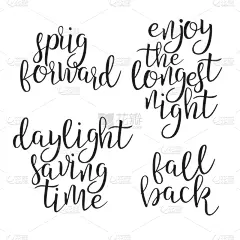 sprig
forward
enjoy
the
longest
night
daylight
saving
time
fall
back